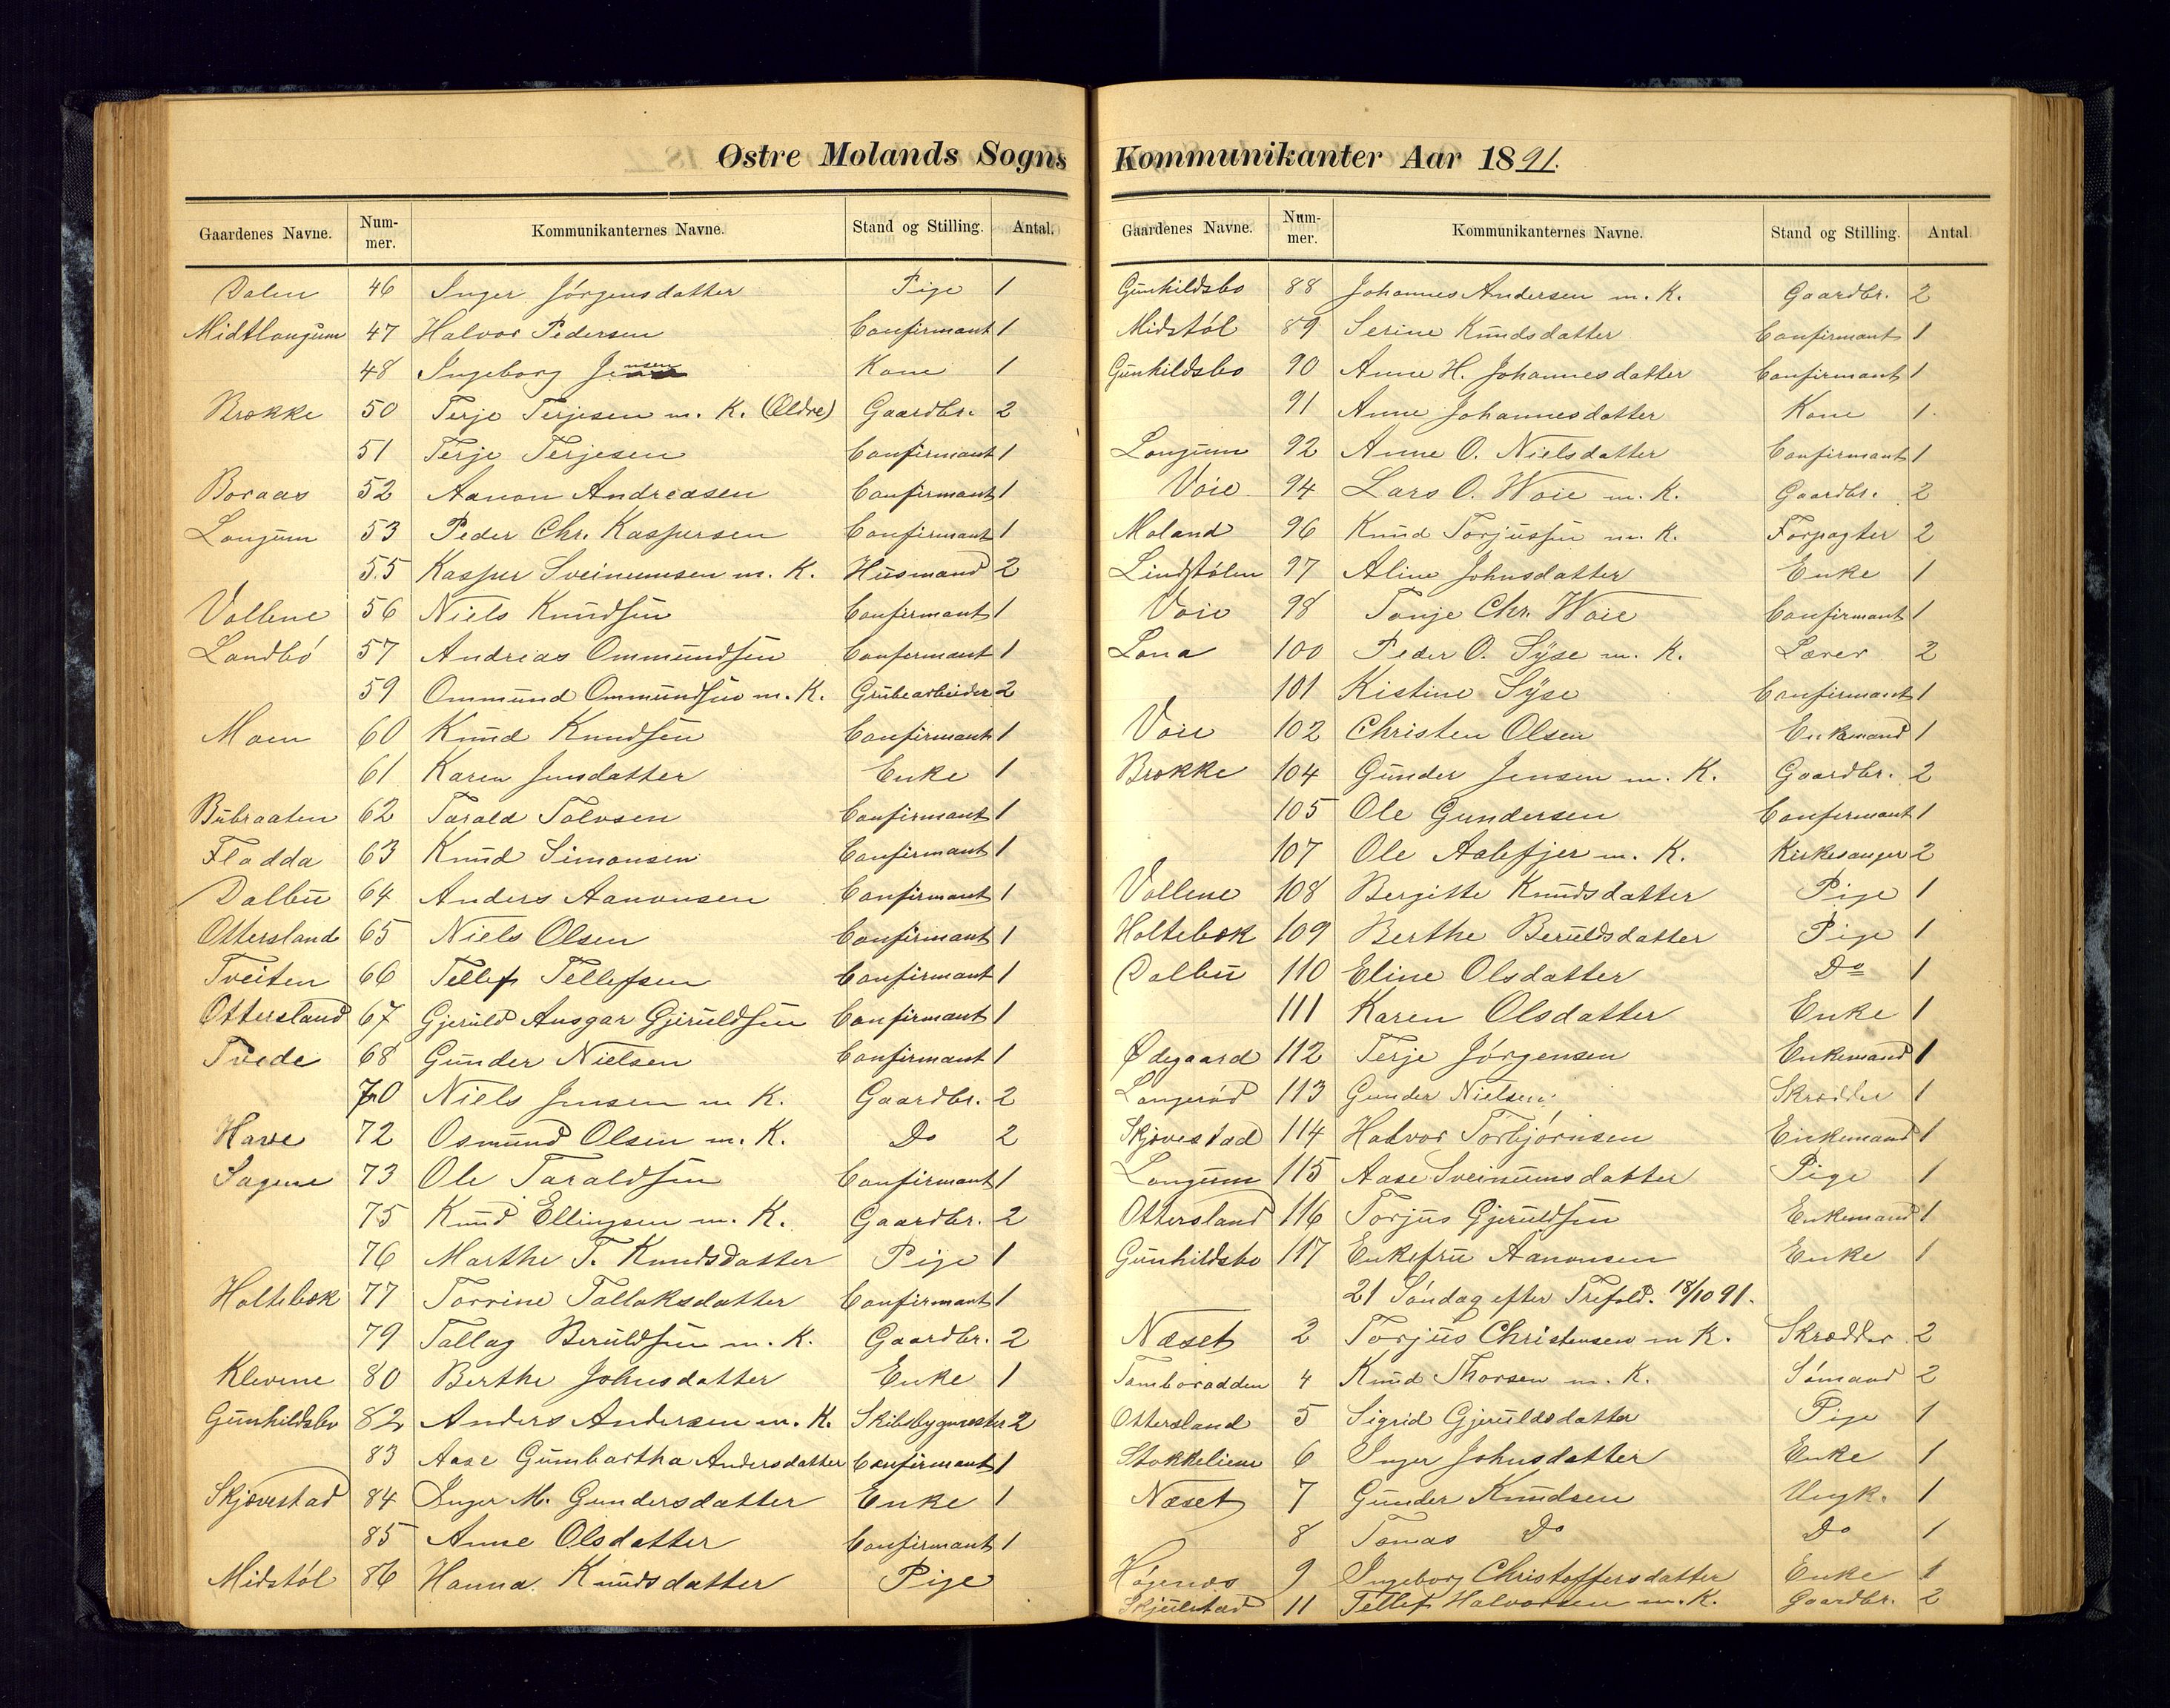 Østre Molands Sogns
Gaardenes Navne. Num-mer. Kommunikanternes Navne. Stand og Stilling. Antal.
Dalen 46 Inger Jörgensdatter Pige 1
Midtlongum 47 Halvor Pedersen Confirmant 1
48 Ingeborg Jensen Kone 1
Brække 50 Terje Terjesen m. K. (Ældre) Gaardbr. 2
51 Terje Terjesen Confirmant 1
Boraas 52 Aanon Andreasen Confirmant 1
Longum 53 Peder Chr. Kaspersen Confirmant 1
55 Kasper Sveinumsen m. K. Husmand 2
Vollene 56 Niels Knudsen Confirmant 1
Landbö 57 Andreas Ommundsen Confermant 1
59 Ommund Ommundsen m. K. Grubearbeider 2
Moen 60 Knud Knudsen Confirmant 1
61 Karen Jensdatter Enke 1
Bübraaten 62 Tarald Tolvsen Confirmant 1
Fladda 63 Knud Simonsen Confirmant 1
Dalbu 64 Anders Aanonsen Confirmant 1
Ottersland 65 Niels Olsen Confirmant 1
Tveiten 66 Tellef Tellefsen Confirmant 1
Ottersland 67 Gjeruld Ansgar Gjeruldsen Confirmant 1
Tvede 68 Gunder Nielsen Confirmant 1
70 Niels Jensen m K. Gaardbr. 2
Have 72 Osmund Olsen m. K. Do 2
Sagene 73 Ole Taraldsen Confirmant 1
75 Knud Ellingsen m. K. Gaardbr. 2
76 Marthe T. Knudsdatter Pige 1
Holtebæk 77 Torrine Tallaksdatter Confirmant 1
79 Tallag Beruldsen m. K. Gaardbr. 2
Klevene 80 Berthe Johnsdatter Enke 1
Gunhildsbo 82 Anders Andersen m. K. Skibsbygmester 2
83 Aase Gumbartha Andersdatter Confirmant 1
Skjævestad 84 Inger M. Gundersdatter Enke 1
85 Anne Olsdatter Confirmant 1
Midstöl 86 Hanna Knudsdatter Pige
Kommunikanter Aar 1891.
Gaardenes Navne. Num-mer. Kommunikanternes Navne. Stand og Stilling. Antal.
Gunhildsbo 88 Johannes Andersen m. K. Gaardbr. 2
Midstöl 89 Serine Knudsdatter Confirmant 1
Gunhildsbo 90 Anne H. Johannesdatter Confirmant 1
91 Anne Johannesdatter Kone 1
Longum 92 Anne O. Nielsdatter Confirmant 1
Voie 94 Lars O. Woie m. K. Gaardbr. 2
Moland 96 Knud Torjussen m. K. Forpagter 2
Lindstölen 97 Aline Johnsdatter Enke 1
Voie 98 Tonje Chr. Woie Confirmant 1
Lona 100 Peder O. Syse m. K. Lærer 2
101 Kistine Syse Confirmant 1
Voie 102 Christen Olsen Enkemand 1
Brække 104 Gunder Jensen m. K. Gaardbr. 2
105 Ole Gundersen Confirmant 1
107 Ole Aalefjer m. K. Kirkesanger 2
Vollene 108 Bergitte Knudsdatter Pige 1
Holtebæk 109 Berthe Beruldsdatter Pige 1
Dalbu 110 Eline Olsdatter Do 1
111 Karen Olsdatter Enke 1
Ødegaard 112 Terje Jörgensen Enkemand 1
Langeröd 113 Gunder Nielsen Skrædder 1
Skjævestad 114 Halvor Torbjörnsen Enkemand 1
Longum 115 Aase Sveinumsdatter Pige 1
Ottersland 116 Torjus Gjeruldsen Enkemand 1
Gunhildsbo 117 Enkefru Aanonsen Enke 1
21 Söndag efter Trefold. 18/10 91.
Næset 2 Torjus Christensen m K. Skrædder 2
Tamboradden 4 Knud Thorsen m. K. Sömand 2
Ottersland 5 Sigrid Gjeruldsdatter Pige 1
Stokkeliene 6 Inger Johnsdatter Enke 1
Næset 7 Gunder Knudsen Ungk. 1
8 Tomas Do Do 1
9 Ingeborg Christoffersdatter Enke 1
Skjulestad 11 Tellef Halvorsen m. K. Gaardbr. 2